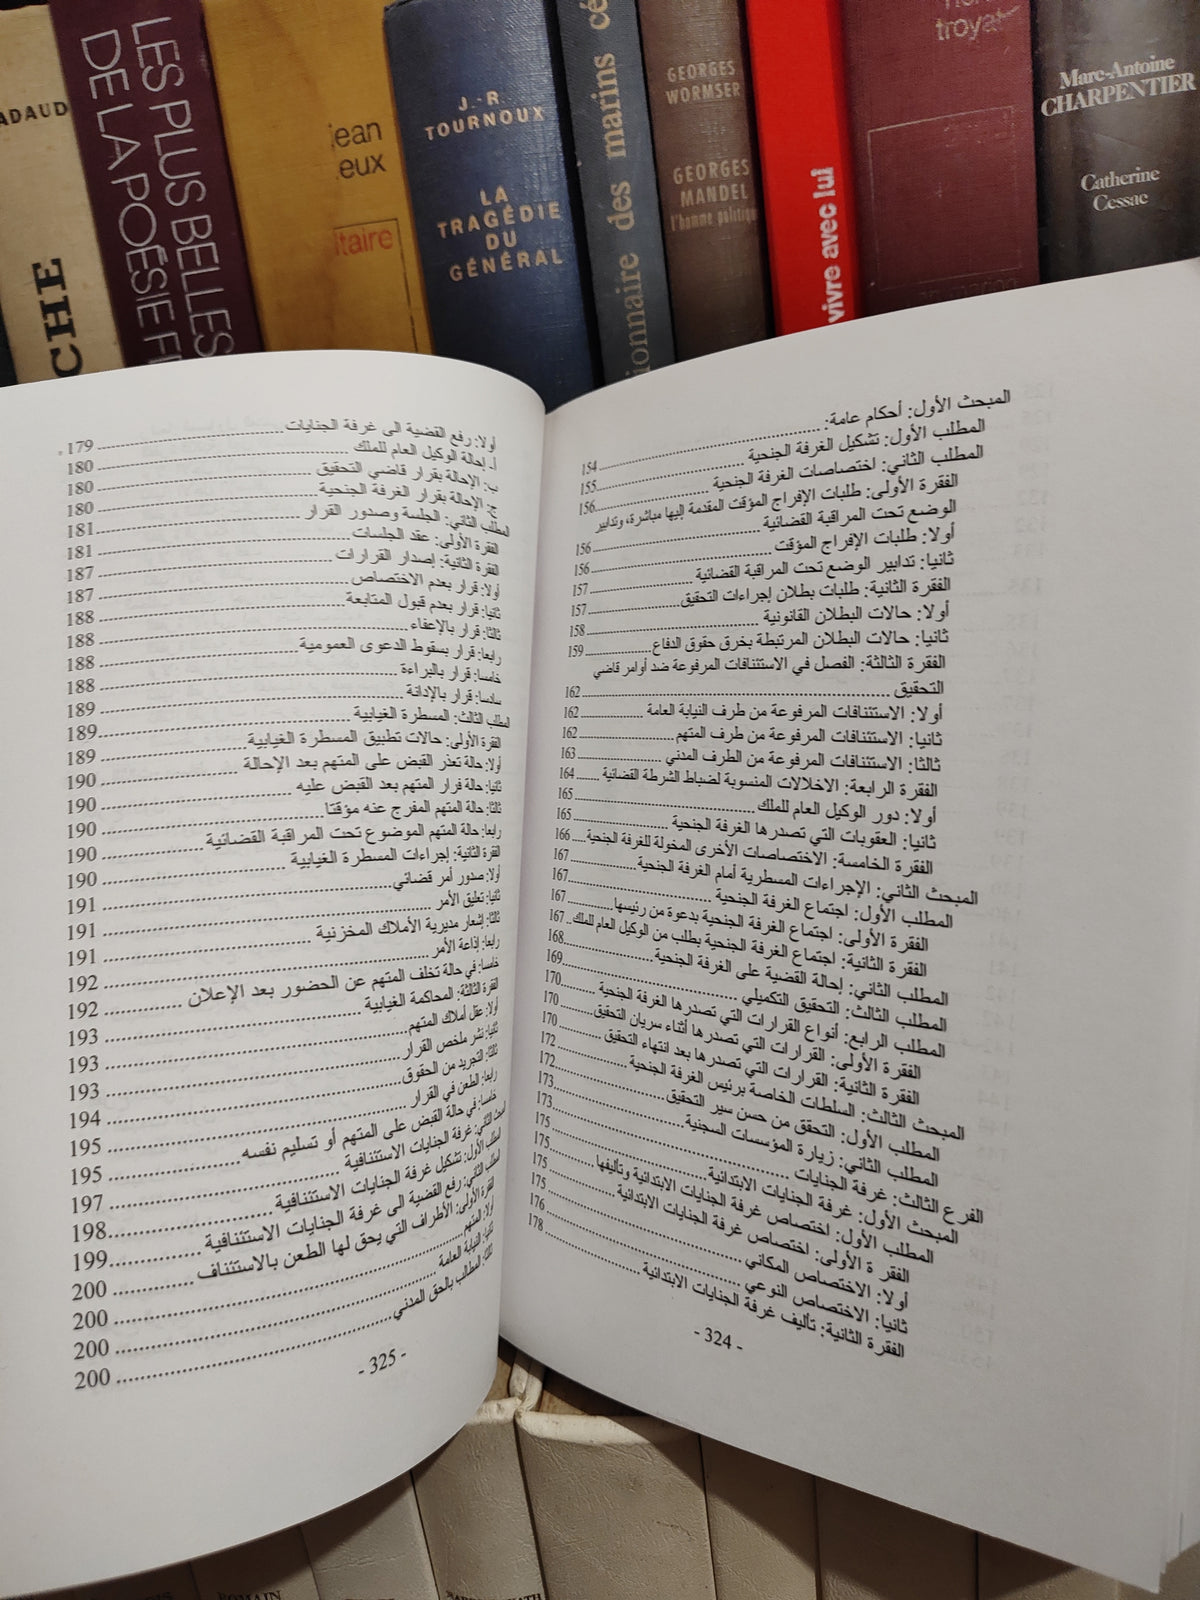 ADAUD
CHE
LES PLUS BELLES
DE LA POÉSIE F
jean
eux
itaire
J.-R.
TOURNOUX
LA
TRAGÉDIE
DU
GÉNÉRAL
ionnaire des marins cé
GEORGES
WORMSER
GEORGES
MANDEL
l'homme politique
vivre avec lui
troyat
Marc-Antoine
CHARPENTIER
Catherine
Cessac
المبحث الأول: أحكام عامة: 154
المطلب الأول: تشكيل الغرفة الجنحية 155
المطلب الثاني: اختصاصات الغرفة الجنحية 156
الفقرة الأولى: طلبات الإفراج المؤقت المقدمة إليها مباشرة، وتدابير
الوضع تحت المراقبة القضائية 156
أولا: طلبات الإفراج المؤقت 156
ثانيا: تدابير الوضع تحت المراقبة القضائية 157
الفقرة الثانية: طلبات بطلان إجراءات التحقيق 157
أولا: حالات البطلان القانونية 158
ثانيا: حالات البطلان المرتبطة بخرق حقوق الدفاع 159
الفقرة الثالثة: الفصل في الاستئنافات المرفوعة ضد أوامر قاضي
التحقيق 162
أولا: الاستئنافات المرفوعة من طرف النيابة العامة 162
ثانيا: الاستئنافات المرفوعة من طرف المتهم 162
ثالثا: الاستئنافات المرفوعة من الطرف المدني 163
الفقرة الرابعة: الاخلالات المنسوبة لضباط الشرطة القضائية 164
أولا: دور الوكيل العام للملك 165
ثانيا: العقوبات التي تصدرها الغرفة الجنحية 165
الفقرة الخامسة: الاختصاصات الأخرى المخولة للغرفة الجنحية 166
المبحث الثاني: الإجراءات المسطرية أمام الغرفة الجنحية 167
المطلب الأول: اجتماع الغرفة الجنحية 167
الفقرة الأولى: اجتماع الغرفة الجنحية بدعوة من رئيسها 167
الفقرة الثانية: اجتماع الغرفة الجنحية بطلب من الوكيل العام للملك 167
المطلب الثاني: إحالة القضية على الغرفة الجنحية 168
المطلب الثالث: التحقيق التكميلي 169
المطلب الرابع: أنواع القرارات التي تصدرها الغرفة الجنحية 170
الفقرة الأولى: القرارات التي تصدرها أثناء سريان التحقيق 170
الفقرة الثانية: القرارات التي تصدرها بعد انتهاء التحقيق 170
المبحث الثالث: السلطات الخاصة برئيس الغرفة الجنحية 172
المطلب الأول: التحقق من حسن سير التحقيق 172
المطلب الثاني: زيارة المؤسسات السجنية 173
الفرع الثالث: غرفة الجنايات 173
المبحث الأول: غرفة الجنايات الابتدائية 175
المطلب الأول: اختصاص غرفة الجنايات الابتدائية وتأليفها 175
الفقرة الأولى: اختصاص غرفة الجنايات الابتدائية 175
أولا: الاختصاص المكاني 175
ثانيا: الاختصاص النوعي 176
الفقرة الثانية: تأليف غرفة الجنايات الابتدائية 178
- 324 -
أولا: رفع القضية الى غرفة الجنايات 179
أ- إحالة الوكيل العام للملك 180
ب: الإحالة بقرار قاضي التحقيق 180
ج: الإحالة بقرار الغرفة الجنحية 180
المطلب الثاني: الجلسة وصدور القرار 181
الفقرة الأولى: عقد الجلسات 181
الفقرة الثانية: إصدار القرارات 187
أولا: قرار بعدم الاختصاص 187
ثانيا: قرار بعدم قبول المتابعة 188
ثالثا: قرار بالإعفاء 188
رابعا: قرار بسقوط الدعوى العمومية 188
خامسا: قرار بالبراءة 188
سادسا: قرار بالإدانة 189
المطلب الثالث: المسطرة الغيابية 189
الفقرة الأولى: حالات تطبيق المسطرة الغيابية 189
أولا: حالة تعذر القبض على المتهم بعد الإحالة 190
ثانيا: حالة فرار المتهم بعد القبض عليه 190
ثالثا: حالة المتهم المفرج عنه مؤقتا 190
رابعا: حالة المتهم الموضوع تحت المراقبة القضائية 190
الفقرة الثانية: إجراءات المسطرة الغيابية 190
أولا: صدور أمر قضائي 191
ثانيا: تعليق الأمر 191
ثالثا: إشعار مديرية الأملاك المخزنية 191
رابعا: إذاعة الأمر 192
خامسا: في حالة تخلف المتهم عن الحضور بعد الإعلان 192
الفقرة الثالثة: المحاكمة الغيابية 193
أولا: عقل أملاك المتهم 193
ثانيا: نشر ملخص القرار 193
ثالثا: التجريد من الحقوق 194
رابعا: الطعن في القرار 195
خامسا: في حالة القبض على المتهم أو تسليم نفسه 195
المبحث الثاني: غرفة الجنايات الاستئنافية 197
المطلب الأول: تشكيل غرفة الجنايات الاستئنافية 198
المطلب الثاني: رفع القضية الى غرفة الجنايات الاستئنافية 199
الفقرة الأولى: الأطراف التي يحق لها الطعن بالاستئناف 200
أولا: المتهم 200
ثانيا: النيابة العامة 200
ثالثا: المطالب بالحق المدني 200
- 325 -
ROMAIN